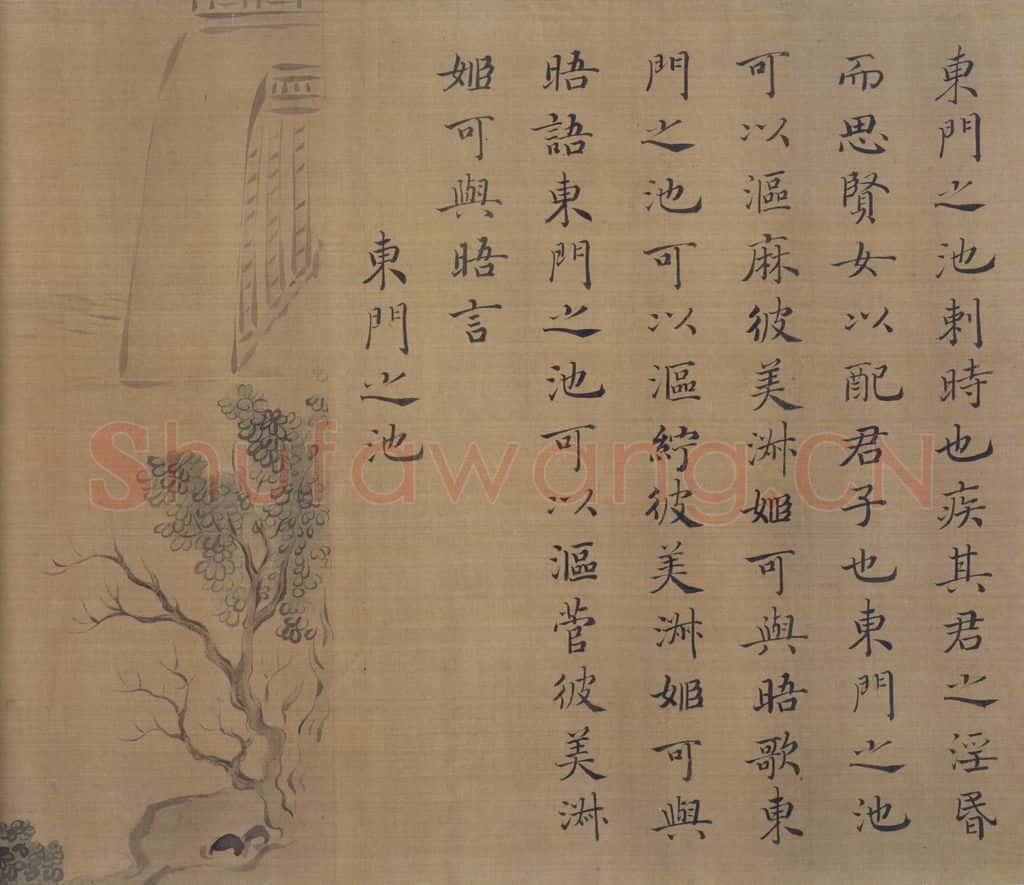 東門之池刺時也疾其君之淫昬
而思賢女以配君子也東門之池
可以漚麻彼美淋姬可與晤歌東
門之池可以漚紵彼美淋姬可與
晤語東門之池可以漚菅彼美淋
姬可與晤言
東門之池
Shufawang.CN